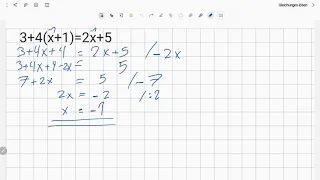 Gleichungen lösen
3+4(x+1)=2x+5
3+4x+4 = 2x+5 /-2x
3+4x+4-2x= 5
7+2x = 5 /-7
2x = -2 /:2
x = -1